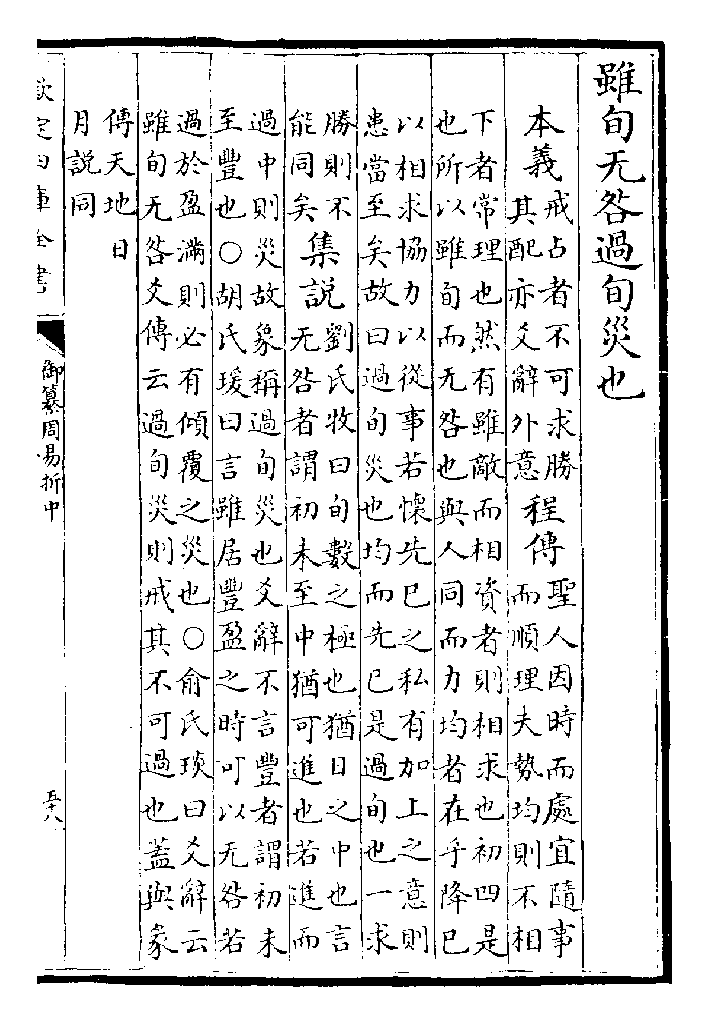 雖旬无咎過旬災也
本義戒占者不可求勝
其配亦爻辭外意
程傳聖人因時而處宜隨事
而順理夫勢均則不相
下者常理也然有雖敵而相資者則相求也初四是
也所以雖旬而无咎也與人同而力均者在乎降已
以相求協力以從事若懷先已之私有加上之意則
患當至矣故曰過旬災也均而先已是過旬也一求
勝則不
能同矣
集說劉氏牧曰旬數之極也猶日之中也言
无咎者謂初未至中猶可進也若進而
過中則災故象稱過旬災也爻辭不言豐者謂初未
至豐也○胡氏瑗曰言雖居豐盈之時可以无咎若
過於盈滿則必有傾覆之災也○俞氏琰曰爻辭云
雖旬无咎爻傳云過旬災則戒其不可過也蓋與彖
傳天地日
月說同
欽定四庫全書
御纂周易折中
五十八